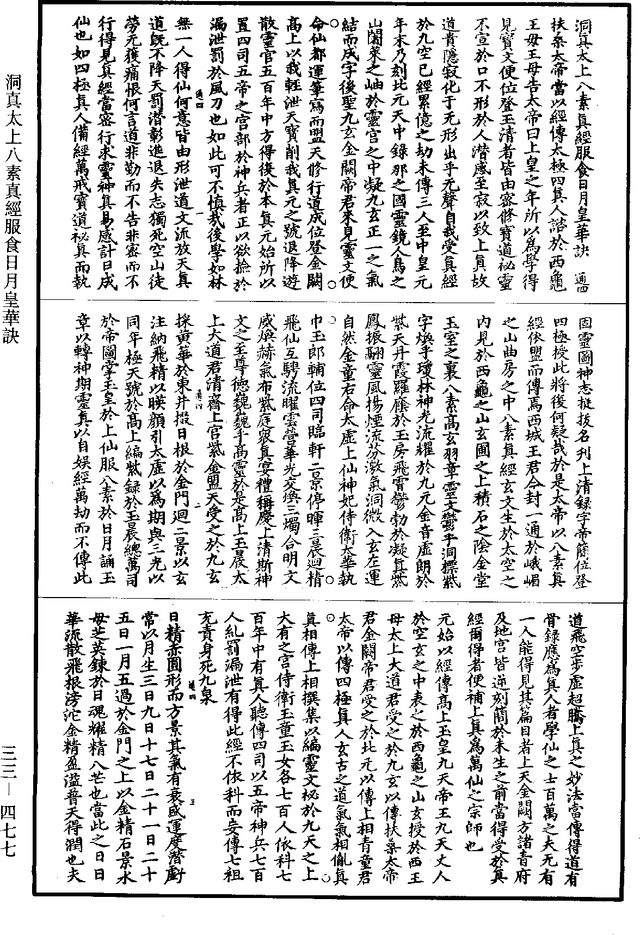 洞真太上八素真經服食日月皇華訣
三三—四七七
洞真太上八素真經服食日月皇華訣　通四
扶桑太帝當以經傳太極四真人諮於西龜
王母王母告太帝曰上皇之年所以為學得
見寶文便位登玉清者皆由密修寶道祕靈
不宣於口不形於人潛感至寂以致上真故
道貴隱寂化于无形出乎无聲自我受真經
於九空已經累億之劫未傳三人至中皇元
年未乃刻此元天中錄那之國靈鏡人鳥之
山閬菜之岫於靈宮之中凝九玄正一之氣
結而成字後聖九玄金闕帝君來見靈文便
命仙都運筆寫而盟天修行道成位登金闕
高上以我輕泄天寶削我真元之號退降遊
散靈官五百年中方得復於本真元始所以
置四司五帝之宮部於神兵者正以欲撿於
漏泄罰於風刀也如此可不慎哉後學如林
無一人得仙何意皆由形泄道文流放天真
道既不降天罰潛彰進退失志獨死空山徒
勞无獲痛恨何言道非勤而不告非密而不
行得見真經當密行求靈神真易感計日成
仙也如四極真人備經萬戒寶道祕真而執
固靈圖神志挺拔名列上清錄字帝簡位登
四極授此將後何疑哉於是太帝以八素真
經依盟而傳焉西城王君今封一通於峨嵋
之山曲房之中八素真經玄文生於太空之
內見於西龜之山玄圃之上積石之陰金堂
玉室之裏八素高玄羽章靈文鬱乎洞標紫
字煥乎瓊林神光流耀於九元金音虛朗於
紫天丹霞羅靡於玉房飛霄鬱勃於凝真紫
鳳振翮靈風揚煙流芬激氣洞微入玄左運
自然金童右命太虛上仙神妃侍衛太華執
巾玉郎輔位四司臨軒二景停暉三晨迴精
飛仙互騁流曜雲營華光交煥三燭合明文
威煥赫氣布紫庭眾真宴禮稱慶上清斯神
文之至尊德巍巍乎高靈於是高上玉晨太
上大道君清齋上宮紫金盟天受之於九玄
採黃華於東井掇日根於金門迴二景以玄
注納飛精以暎顏引太虛以為期與三光以
同年極天號於高上編紫錄於玉晨總萬司
於帝圖掌玉皇於上仙服八素於日月誦玉
章以轉神期靈真以自娛經萬劫而不傳此
道飛空步虛超騰上真之妙法當傳得道有
骨錄應為真人者學仙之士百萬之夫无有
一人能得見其篇目者上天金闕方諸青府
及地官皆逆刻簡於未生之前當得受於真
經爾得者便補上真為萬仙之宗師也
元始以經傳高上玉皇九天帝王九天丈人
於空玄之中表之於西龜之山玄授於西王
母太上大道君受之於九玄以傳扶桑太帝
君金闕帝君受之於北元以傳上相青童君
太帝以傳四極真人玄古之道氣氣相胤真
真相傳上相撰集以編靈文祕於九天之上
大有之宮侍衛玉童玉女各七百人依科七
百年中有真人聽傳四司以五帝神兵七百
人糺罰漏泄有得此經不依科而妄傳七祖
充責身死九泉
日精赤圓形而方景其氣有衰盛運度潛對
常以月生三日九日十七日二十一日二十
五日一月五過於金門之上以金精石景水
母芝英鍊於日魂耀精八芒也當此之日日
華流散飛根滂沱金精盈溢普天得潤也夫